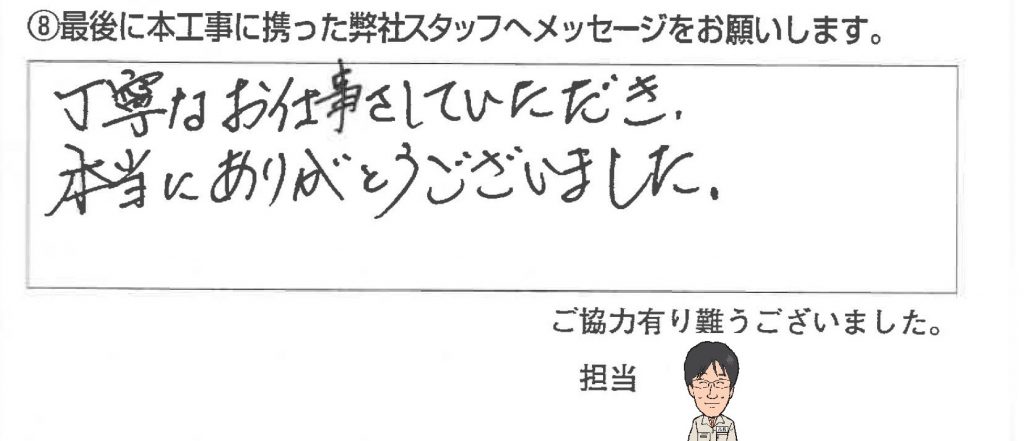 ⑧最後に本工事に携った弊社スタッフへメッセージをお願いします。
丁寧なお仕事さしていただき、
本当にありがとうございました。
ご協力有り難うございました。
担当